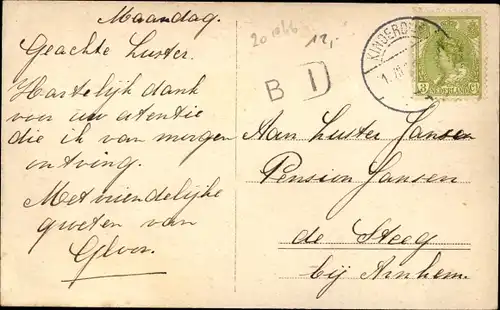 Maandag.
Geachte Zuster.
Hartelijk dank
voor uw atentie
die ik van morgen
ontving.
Met vriendelijke
groeten van
20
12,-
B
KINDERD
3 NEDERLAND Ct
Aan Zuster Jansen
Pension Jansen
de Steeg
bij Arnhem.